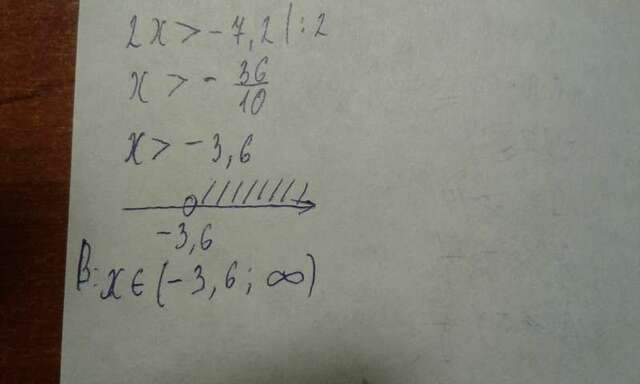 2x > -7,2 | :2
x > - 36/10
x > -3,6
-3,6
В: x ∈ (-3,6; ∞)